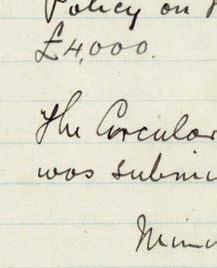 Policy on
£4,000.
The Circular
was submi
Minu